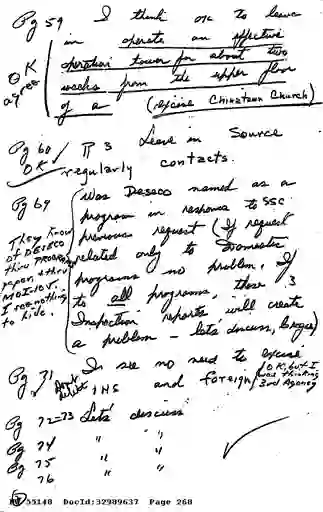 Pg 59 I think ok to leave
in operate an effective
OK agree
operation tower for about two
weeks from the upper floor
of a (excise Chinatown Church)
Pg 60 ✓ ¶ 3 Leave in Source
OK
regularly contacts.
Pg 69 Was Deseco named as a
program in response to SSC
previous request (If request
related only to Domestic
programs no problem. If
to all programs, these 3
Inspection reports will create
a problem - lets discuss,
They know
of DESECO
thru
paper & thru
I see nothing
to hide.
Pg 71 I see no need to excise
INS and foreign
Don't delete
OK, but I
was thinking
3rd Agency
Pg 72-73 Let's discuss
Pg 74 " "
Pg 75 " "
76 " "
55148 DocId:32989637 Page 268